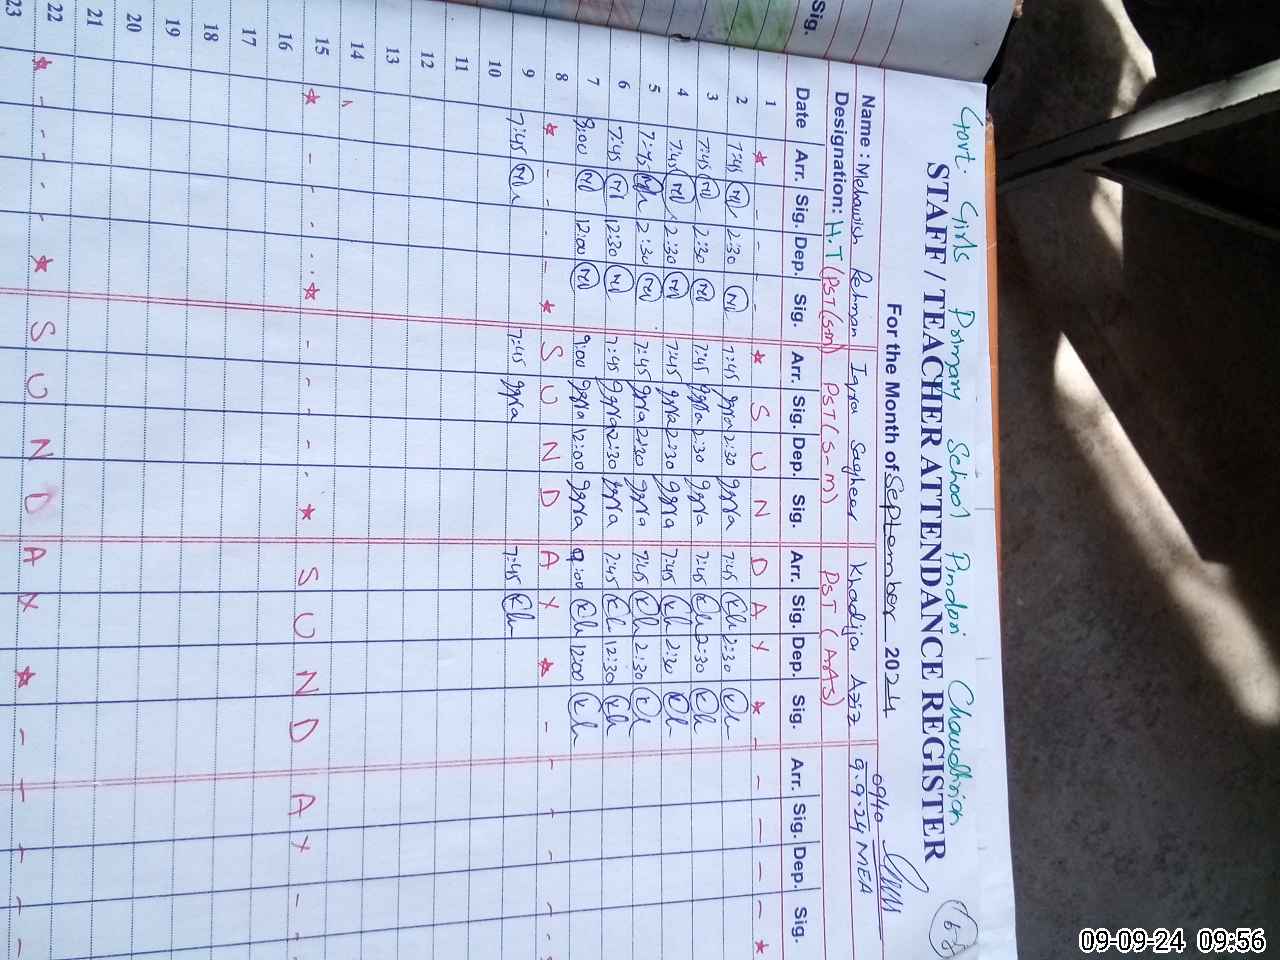 Sig.
Govt. Girls Primary School Pindori Chaudhrian
STAFF / TEACHER ATTENDANCE REGISTER
For the Month of September 2024
0940
9.9.24 MEA
Name : Mehwish Rehman Iqra Sagheer Khadija Aziz
Designation: H.T (PST(S-M) PST(S-M) PST (AAS)
Date Arr. Sig. Dep. Sig. Arr. Sig. Dep. Sig. Arr. Sig. Dep. Sig. Arr. Sig. Dep. Sig.
1 * - - - - * S U N D A Y * - - - - - *
2 7:45 2:30 7:45 Iqra 2:30 Iqra 7:45 Kh 2:30 Kh
3 7:45 2:30 7:45 Iqra 2:30 Iqra 7:45 Kh 2:30 Kh
4 7:45 2:30 7:45 Iqra 2:30 Iqra 7:45 Kh 2:30 Kh
5 7:45 2:30 7:45 Iqra 2:30 Iqra 7:45 Kh 2:30 Kh
6 7:45 12:30 7:45 Iqra 2:30 Iqra 7:45 Kh 12:30 Kh
7 9:00 12:00 9:00 Iqra 12:00 Iqra 9:00 Kh 12:00 Kh
8 * - - - - * S U N D A Y * - - - - -
9 7:45 7:45 Iqra 7:45 Kh
10
11
12
13
14
15 * - - - - * - - - - * S U N D A Y - -
16
17
18
19
20
21
22 * - - - - * S U N D A Y * - - - - -
23
09-09-24 09:56